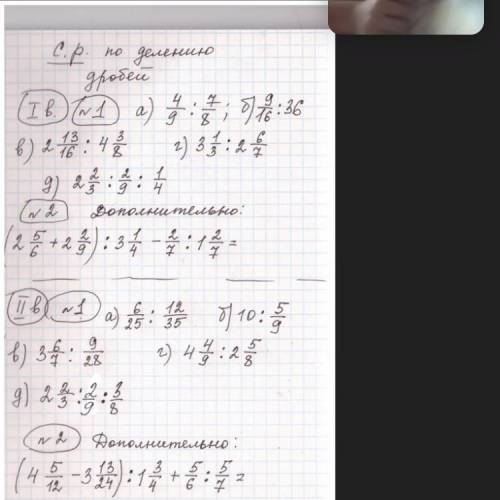 С.р. по делению
дробей
I в. №1 а) 4/9 : 7/8 ; б) 9/16 : 36
в) 2 13/16 : 4 3/8 г) 3 1/3 : 2 6/7
д) 2 2/3 : 2/9 : 1/4
№2 Дополнительно:
(2 5/6 + 2 2/9) : 3 1/4 − 2/7 : 1 2/7 =
II в №1 а) 6/25 : 12/35 б) 10 : 5/9
в) 3 6/7 : 9/28 г) 4 4/9 : 2 5/8
д) 2 2/3 : 2/9 : 3/8
№2 Дополнительно:
(4 5/12 − 3 13/24) : 1 3/4 + 5/6 : 5/7 =